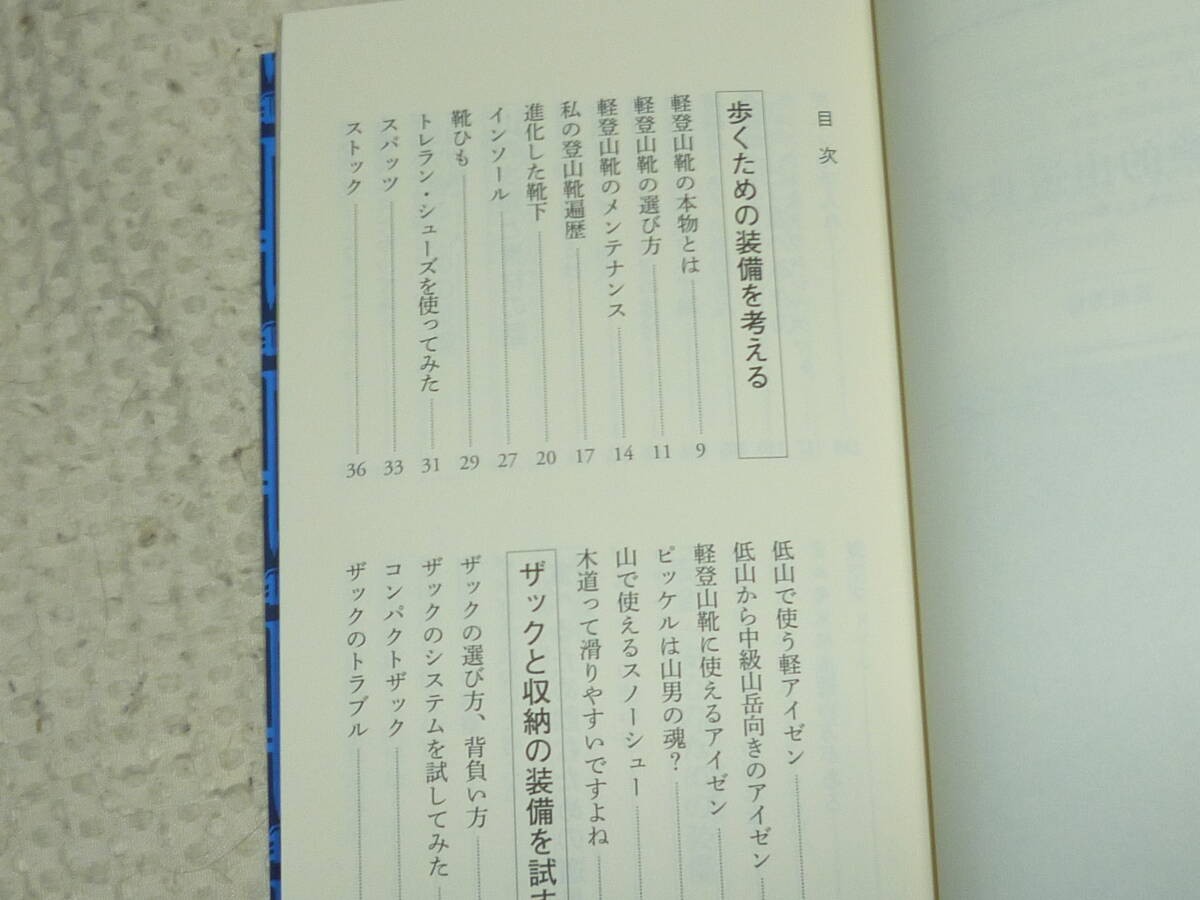 目次
歩くための装備を考える
軽登山靴の本物とは 9
軽登山靴の選び方 11
軽登山靴のメンテナンス 14
私の登山靴遍歴 17
進化した靴下 20
インソール 27
靴ひも 29
トレラン・シューズを使ってみた 31
スパッツ 33
ストック 36
低山で使う軽アイゼン
低山から中級山岳向きのアイゼン
軽登山靴に使えるアイゼン
ピッケルは山男の魂？
山で使えるスノーシュー
木道って滑りやすいですよね
ザックと収納の装備を試す
ザックの選び方、背負い方
ザックのシステムを試してみた
コンパクトザック
ザックのトラブル